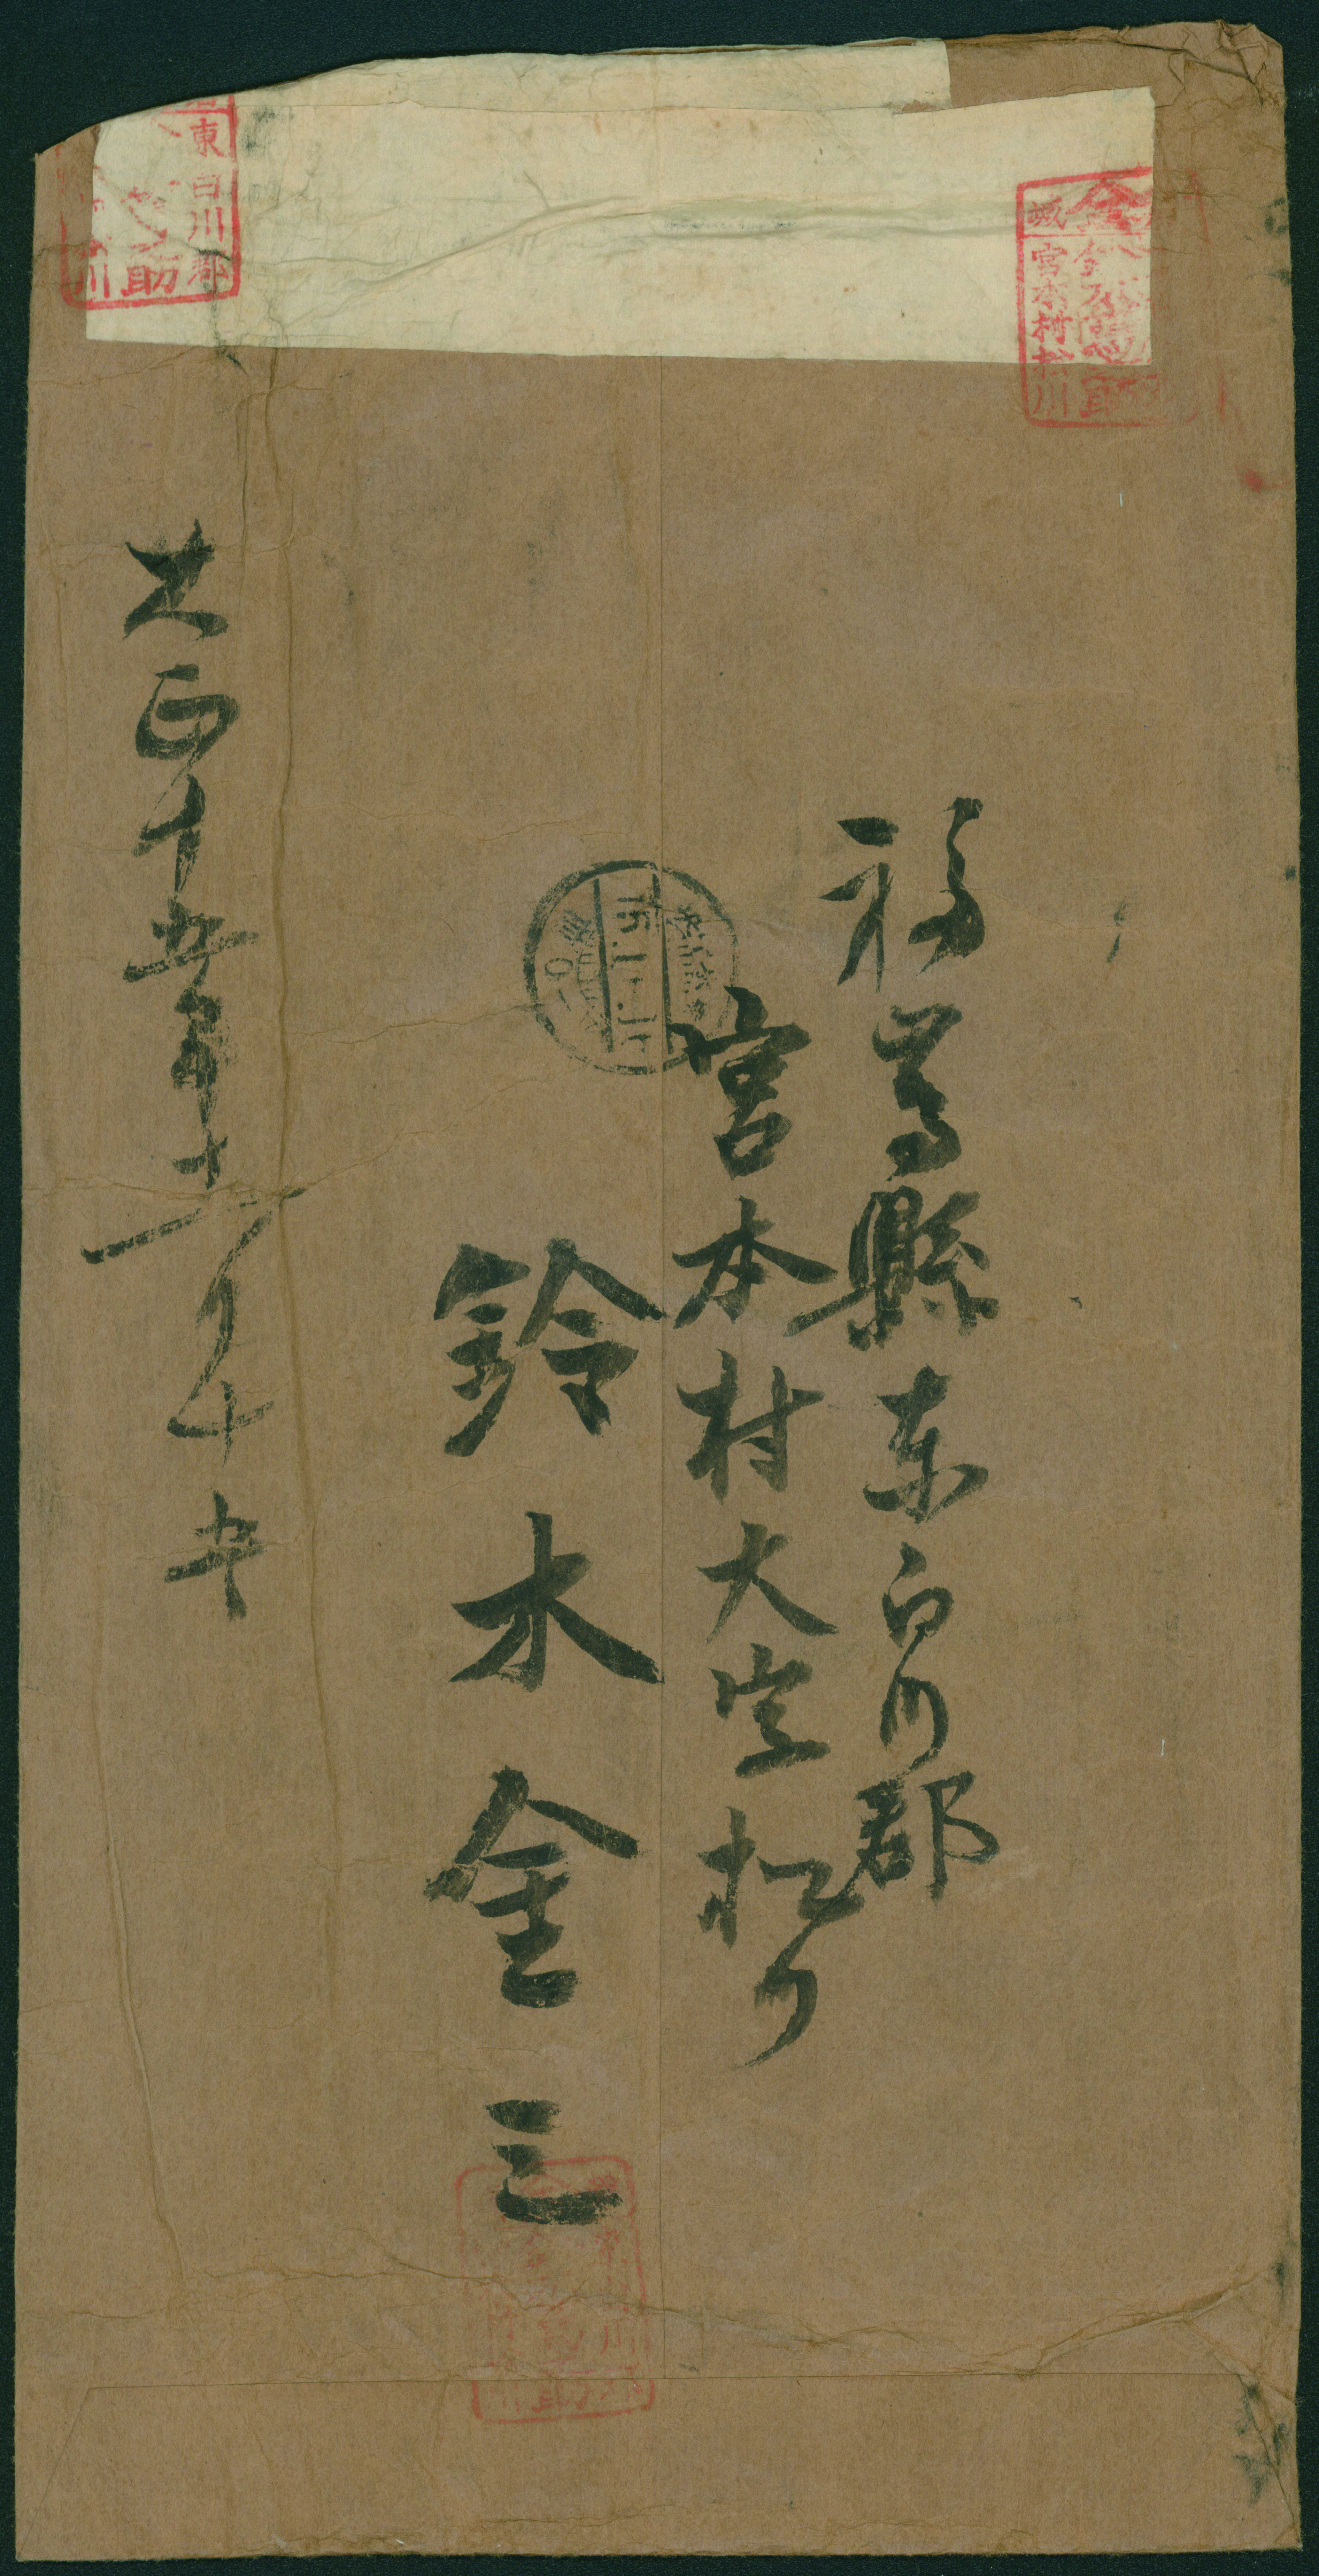 東白川郡
之助
川
宮本村松川
福島縣東白川郡
宮本村大字松川
鈴木金三
大正十五年十一月十五